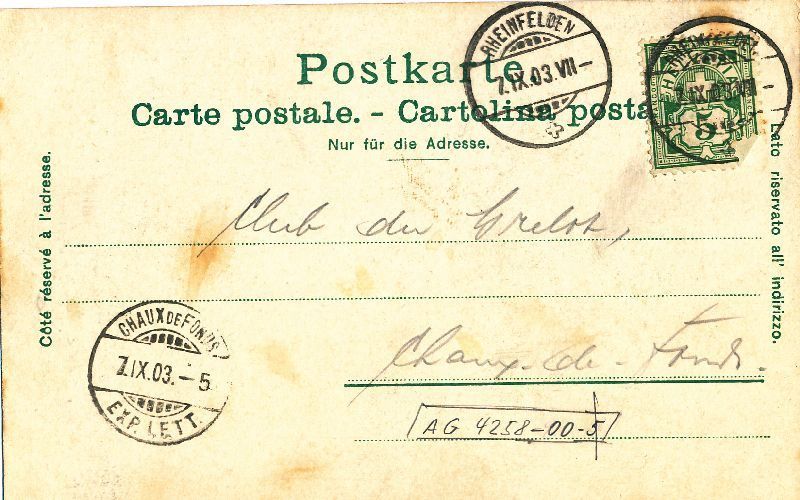 Postkarte.
Carte postale. - Cartolina posta
Nur für die Adresse.
Côté réservé à l'adresse.
Lato riservato all' indirizzo.
RHEINFELDEN
7.IX.03.VII-
7.IX.03.VII
5
Club du Grelot,
Chaux-de-Fonds.
CHAUX DE FONDS
7.IX.03.-5
EXP. LETT.
AG 4258-00-5